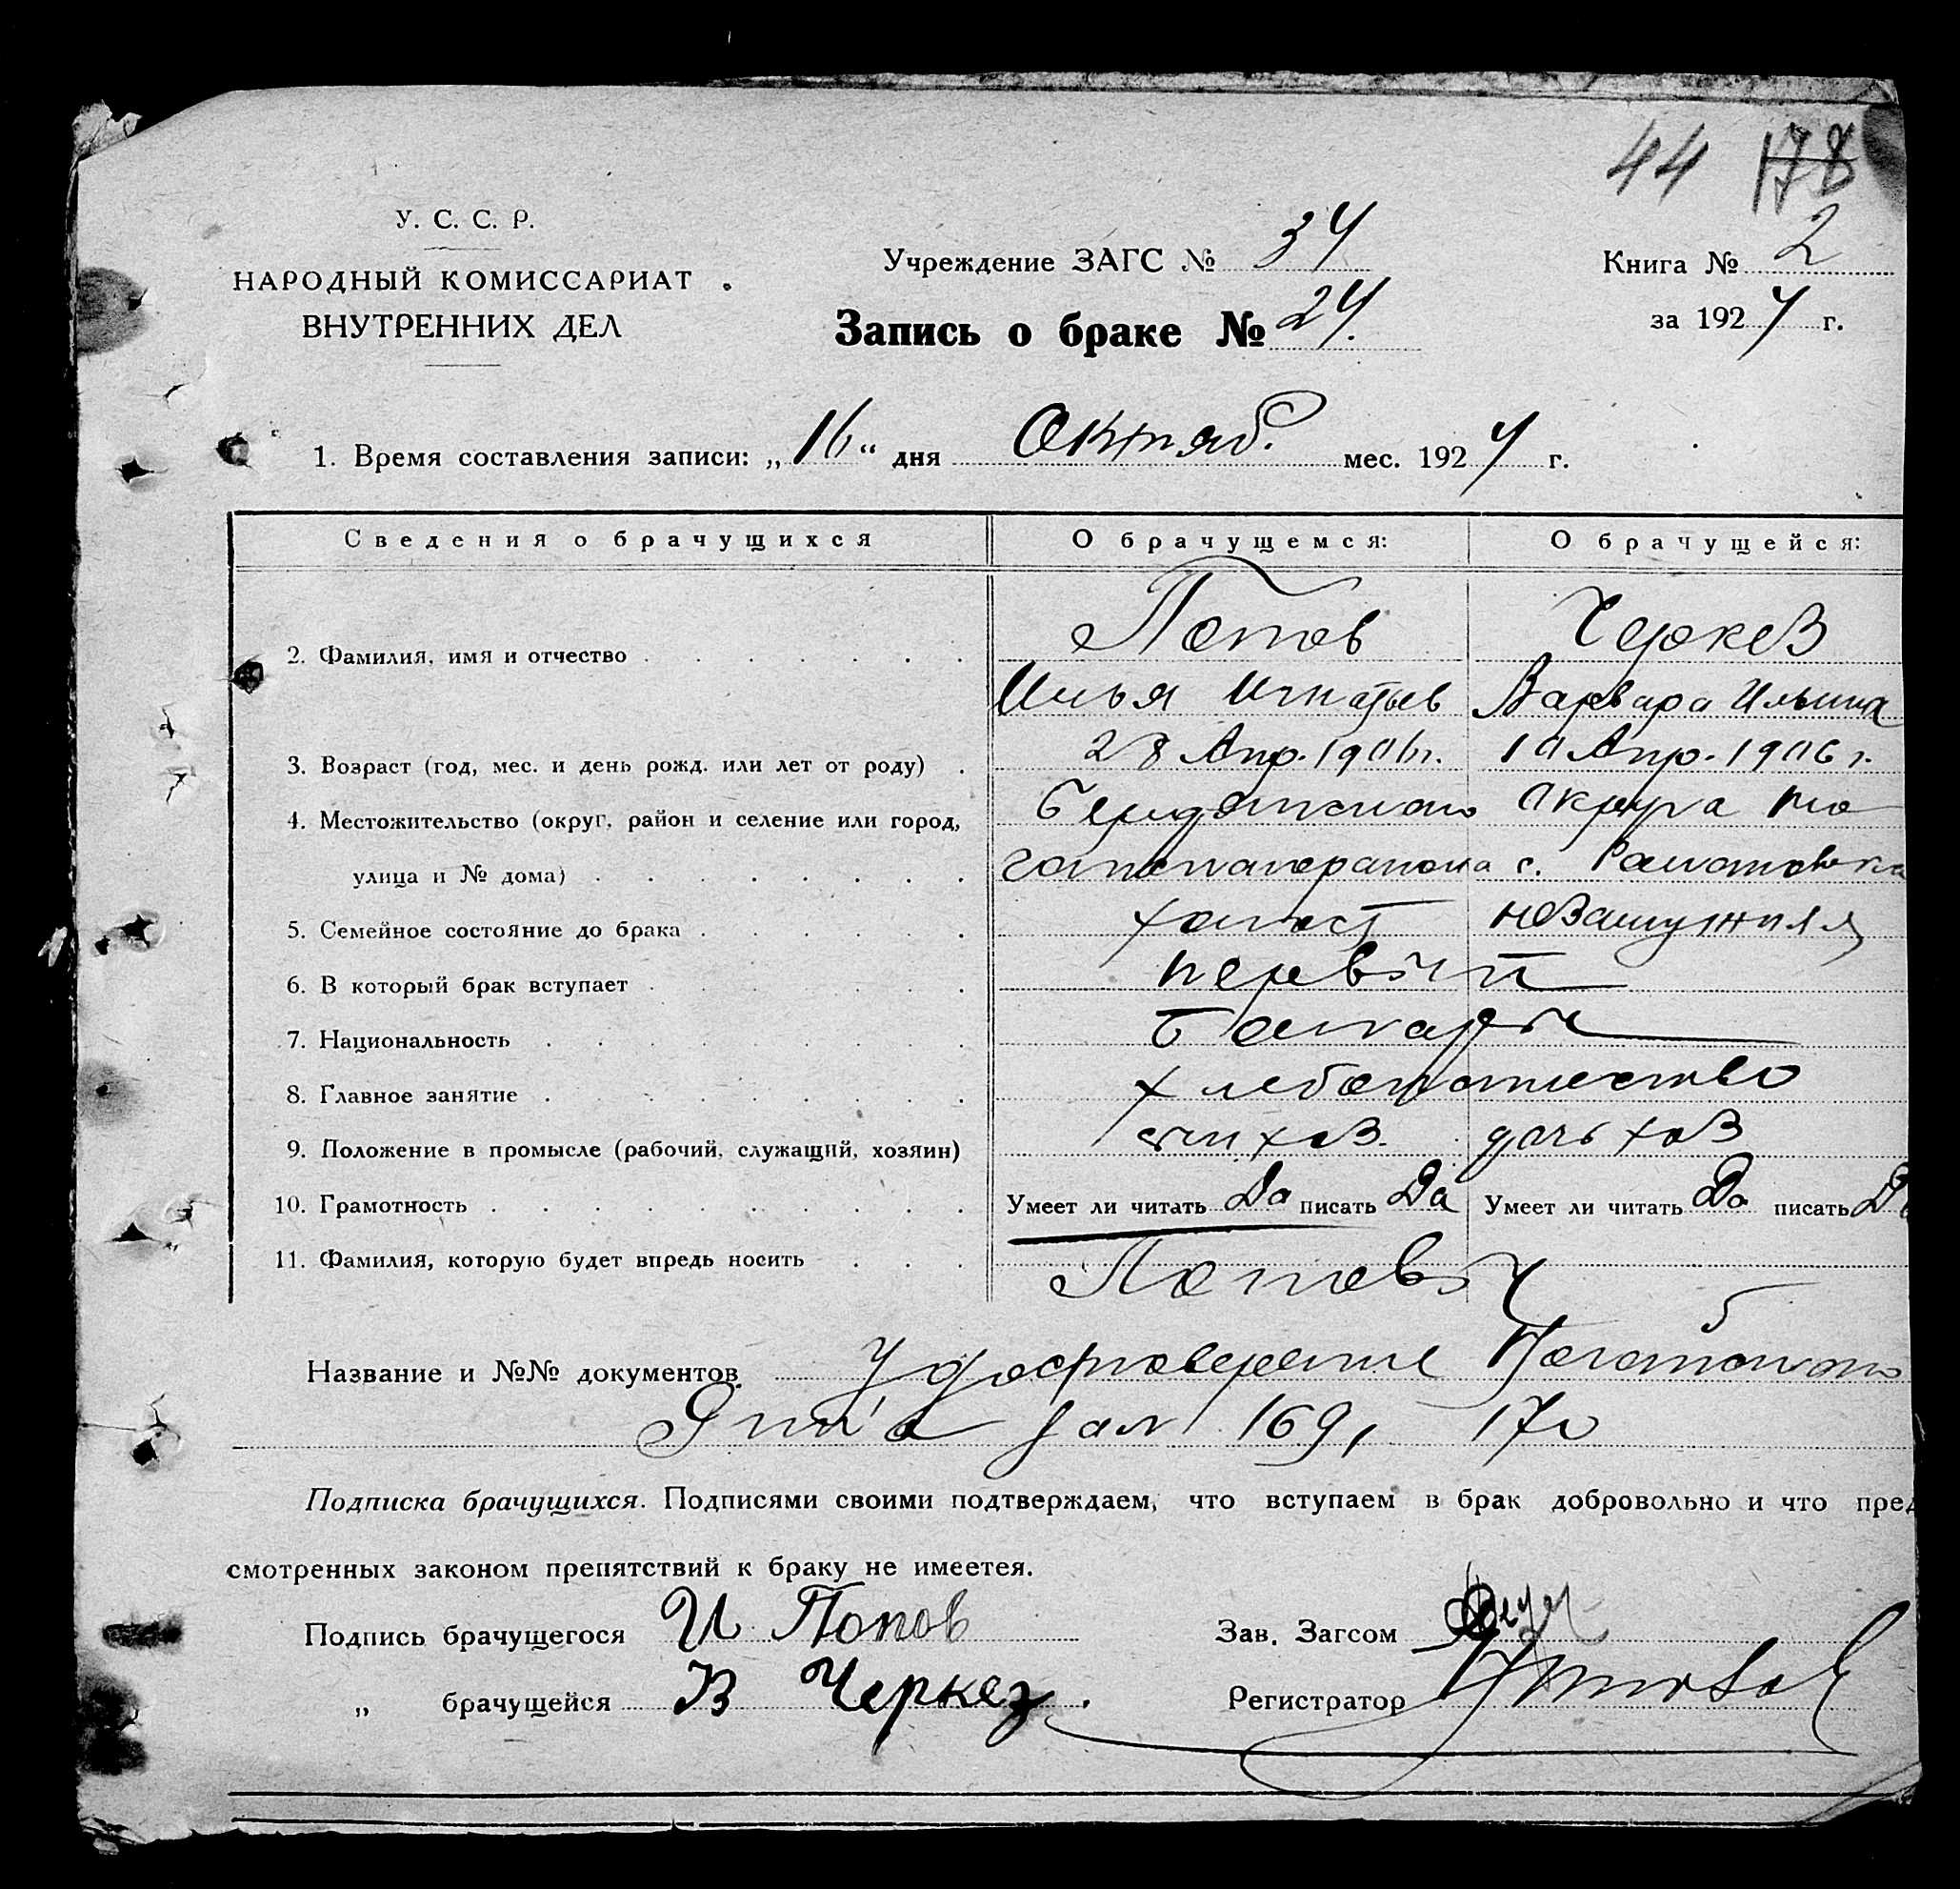 44 178
У. С. С. Р.
НАРОДНЫЙ КОМИССАРИАТ
ВНУТРЕННИХ ДЕЛ
Учреждение ЗАГС № 34
Книга № 2
Запись о браке № 24.
за 1924 г.
1. Время составления записи: „16“ дня Октяб. мес. 1924 г.
Сведения о брачущихся О брачущемся: О брачущейся:
2. Фамилия, имя и отчество Попов Черкез
Илья Игнатьев Варвара Ильина
3. Возраст (год, мес. и день рожд. или лет от роду) 28 Апр. 1906 г. 10 Апр. 1906 г.
4. Местожительство (округ, район и селение или город, Бердянского округа Но
улица и № дома) гайского района с. Романовка
5. Семейное состояние до брака холост незамужняя
6. В который брак вступает первый
7. Национальность Болгары
8. Главное занятие хлебопашество
9. Положение в промысле (рабочий, служащий, хозяин) сын хоз. дочь хоз
10. Грамотность Умеет ли читать Да писать Да Умеет ли читать Да писать Да
11. Фамилия, которую будет впредь носить Поповы
Название и №№ документов Удостоверение Ногайского
за № 169, 170
Подписка брачущихся. Подписями своими подтверждаем, что вступаем в брак добровольно и что пред
смотренных законом препятствий к браку не имеетея.
Подпись брачущегося И Попов Зав. Загсом
„ брачущейся В Черкез. Регистратор